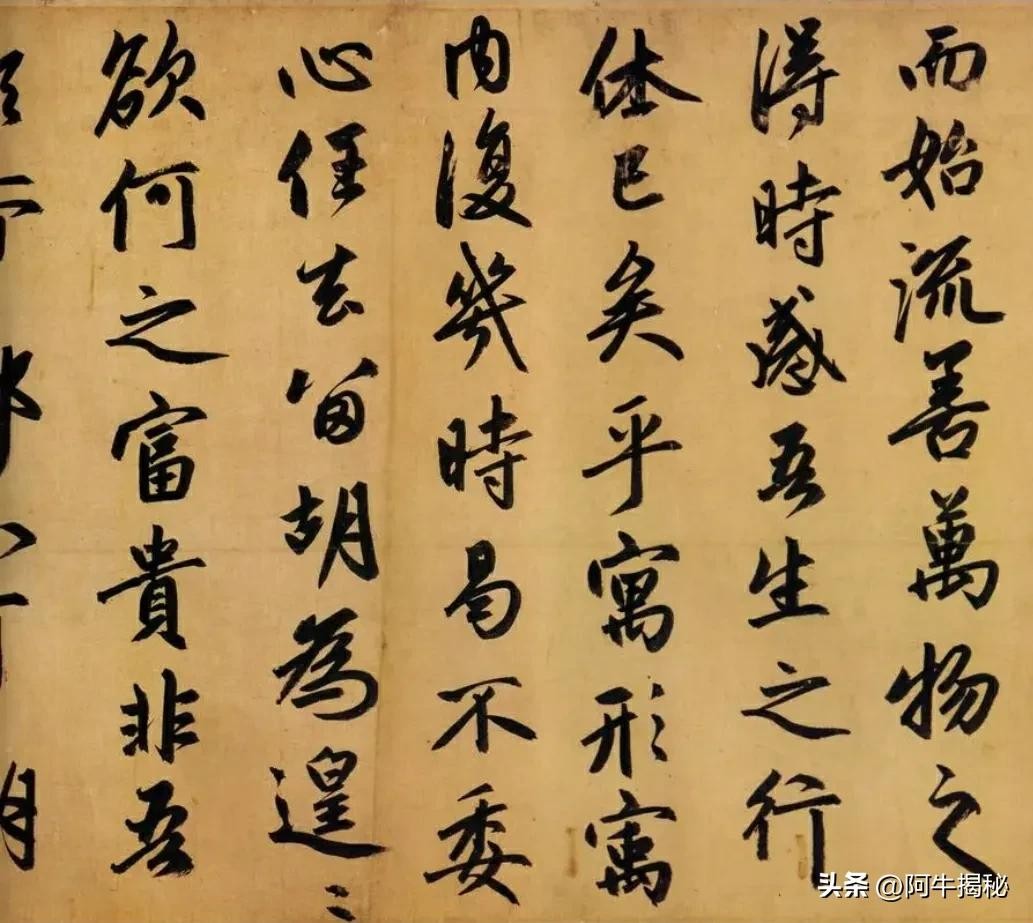 而始流善萬物之
得時感吾生之行
休已矣乎寓形寓
内復幾時曷不委
心任去留胡為遑〻
欲何之富貴非吾
头条 @阿牛揭秘